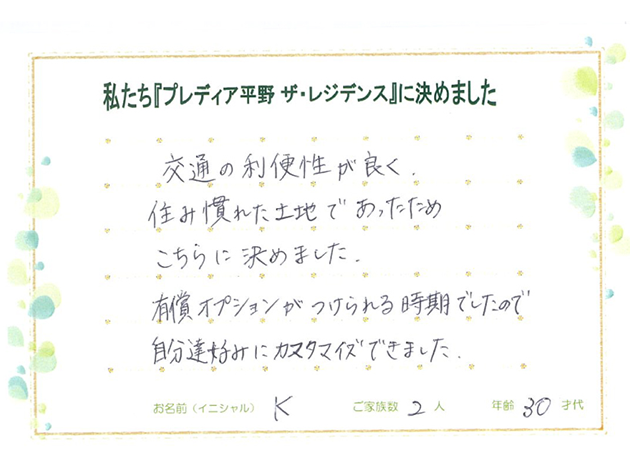 私たち『プレディア平野 ザ・レジデンス』に決めました
交通の利便性が良く、
住み慣れた土地であったため
こちらに決めました。
有償オプションがつけられる時期でしたので
自分達好みにカスタマイズできました。
お名前（イニシャル） K ご家族数 2 人 年齢 30 才代